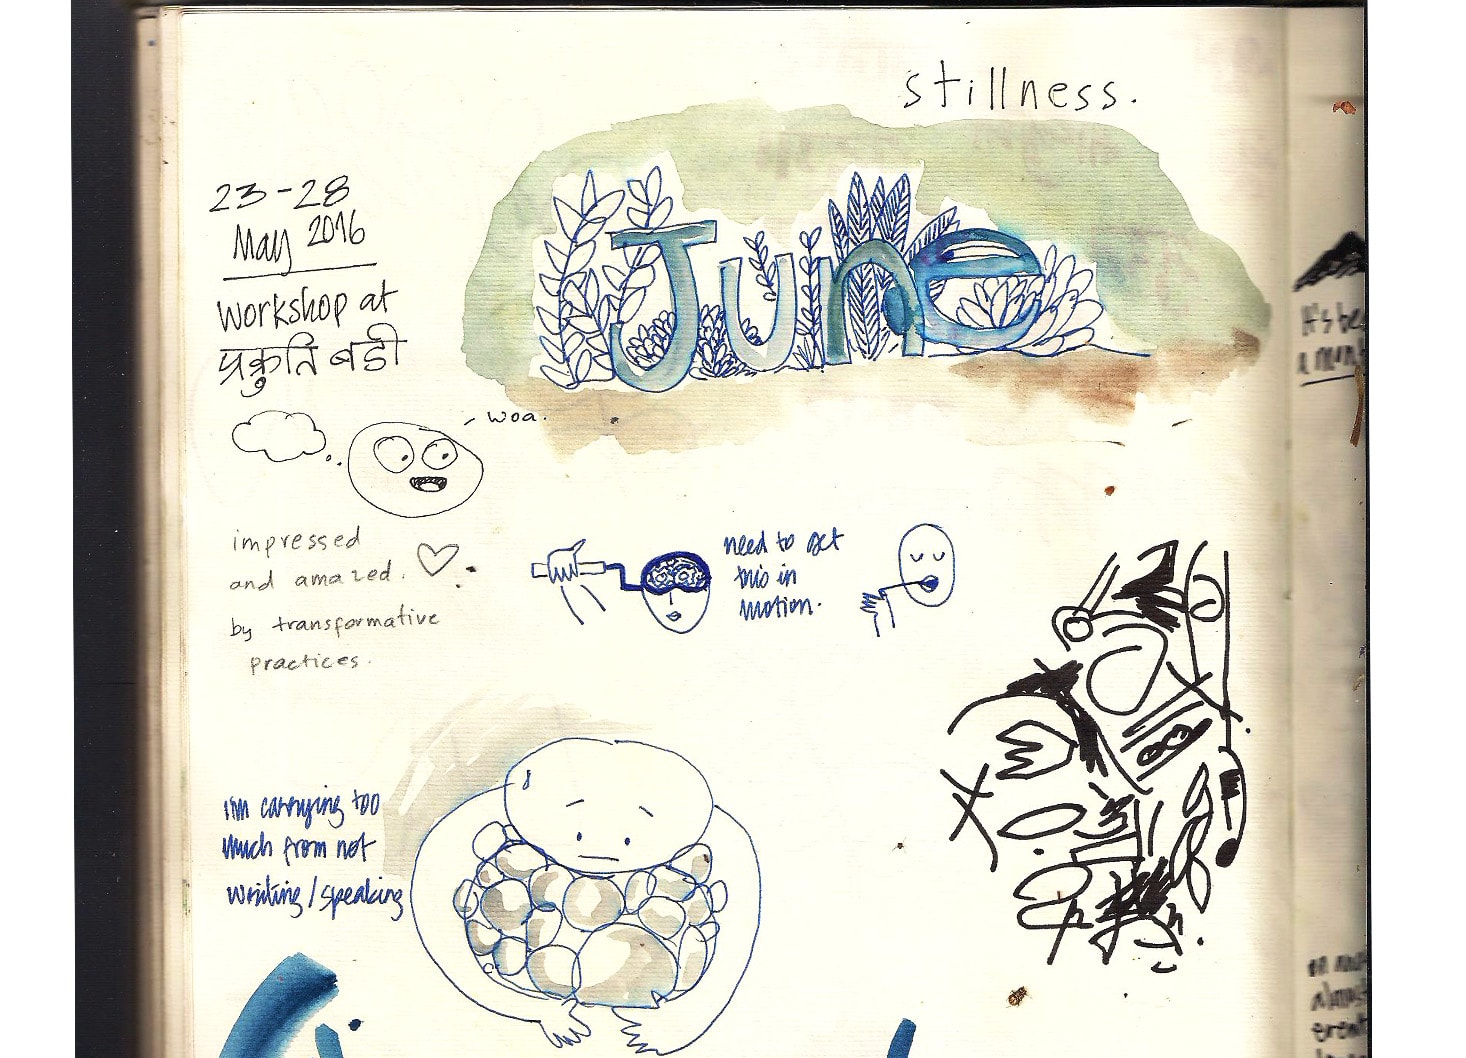 stillness.
June
23-28
May 2016
workshop at
प्रकृति बडी
woa.
impressed
and amazed.
by transformative
practices.
need to set
this in
motion.
I'm carrying too
much from not
writing/speaking
It's be
a mon